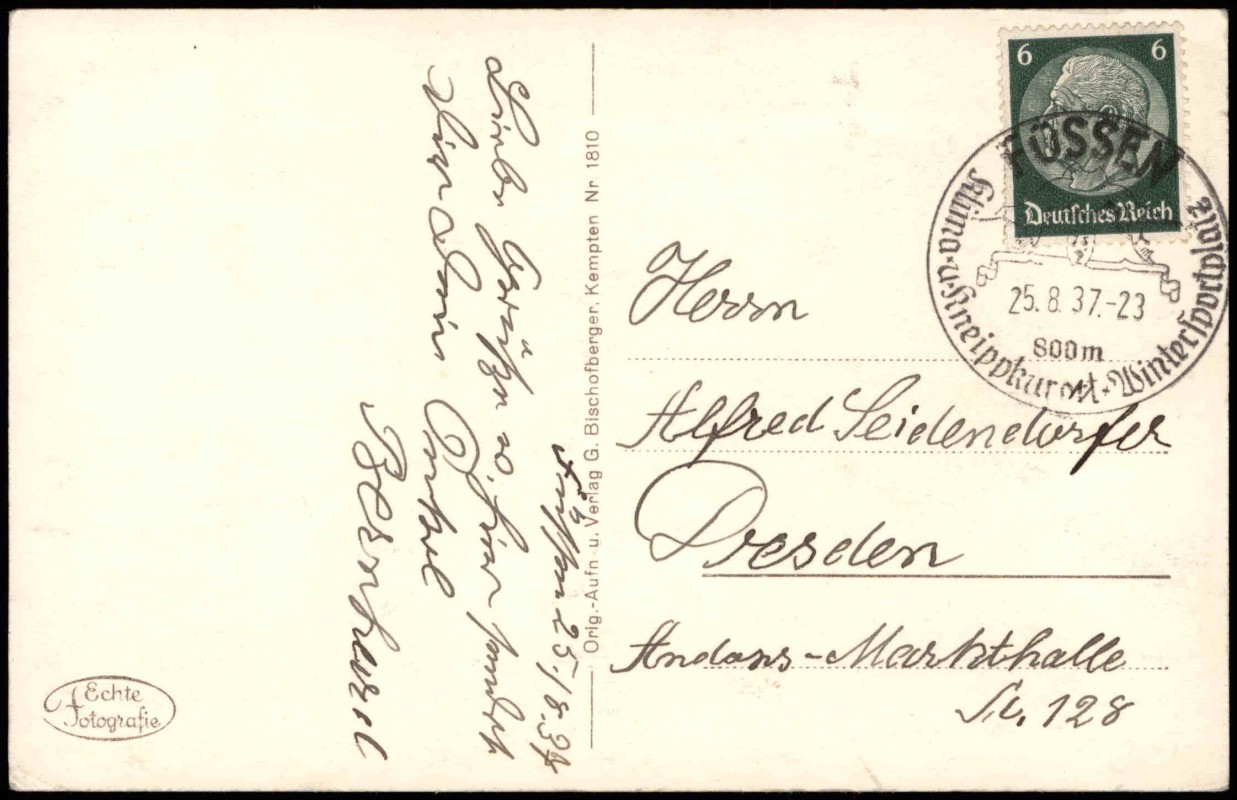 6 6
Deutsches Reich
FÜSSEN
Klima- u. Kneippkurort · Wintersportplatz
25.8.37.-23
800m
Füssen 25/8.37
Liebe Grüße v. hier sendet
Dir Dein Onkel
Bernhard
Orig.-Aufn- u. Verlag G. Bischofberger, Kempten Nr 1810
Herrn
Alfred Seidendorfer
Dresden
Andons-Markthalle
St. 128
Echte
Fotografie